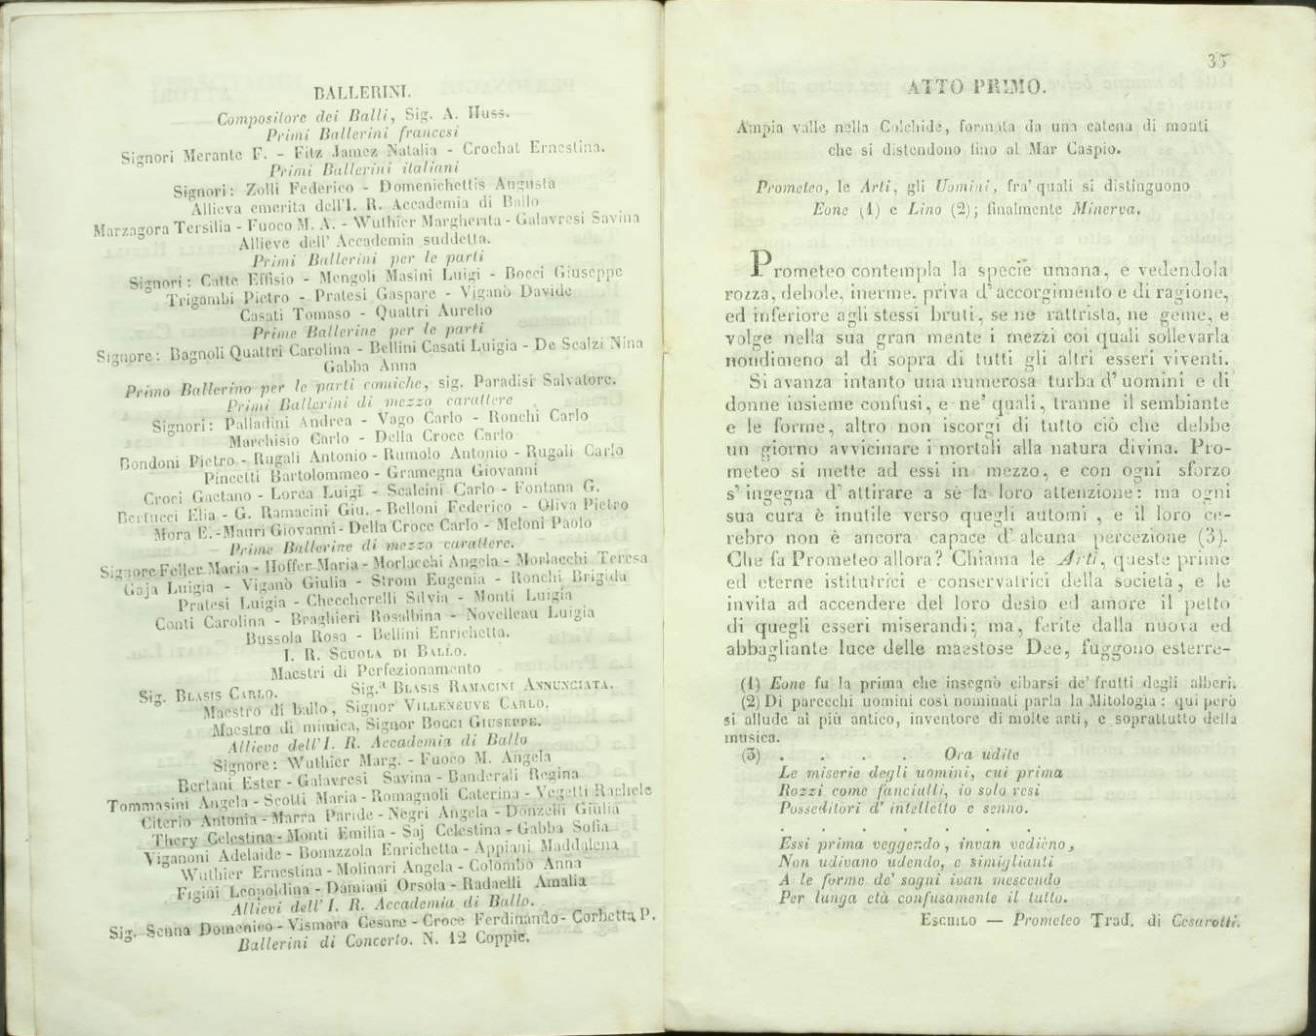 BALLERINI.
Compositore dei Balli, Sig. A. Huss.
Primi Ballerini francesi
Signori Merante F. - Fitz Jamez Natalia - Crochat Ernestina.
Primi Ballerini italiani
Signori: Zolli Federico - Domenichettis Augusta
Allieva emerita dell'I. R. Accademia di Ballo
Marzagora Tersilia - Fuoco M. A. - Wuthier Margherita - Galavresi Savina
Allieve dell' Accademia suddetta.
Primi Ballerini per le parti
Signori: Catte Effisio - Mengoli Masini Luigi - Bocci Giuseppe
Trigambi Pietro - Pratesi Gaspare - Viganò Davide
Casati Tomaso - Quattri Aurelio
Prime Ballerine per le parti
Signore: Bagnoli Quattri Carolina - Bellini Casati Luigia - De Scalzi Nina
Gabba Anna
Primo Ballerino per le parti comiche, sig. Paradisi Salvatore.
Primi Ballerini di mezzo carattere
Signori: Palladini Andrea - Vago Carlo - Ronchi Carlo
Marchisio Carlo - Della Croce Carlo
Bondoni Pietro - Rugali Antonio - Rumolo Antonio - Rugali Carlo
Pincetti Bartolommeo - Gramegna Giovanni
Croci Gaetano - Lorea Luigi - Scalcini Carlo - Fontana G.
Bertucci Elia - G. Ramacini Giu. - Belloni Federico - Oliva Pietro
Mora E. - Mauri Giovanni - Della Croce Carlo - Meloni Paolo
Prime Ballerine di mezzo carattere.
Signore Feller Maria - Hoffer Maria - Morlacchi Angela - Morlacchi Teresa
Gaja Luigia - Viganò Giulia - Strom Eugenia - Ronchi Brigida
Pratesi Luigia - Checcherelli Silvia - Monti Luigia
Conti Carolina - Braghieri Rosalbina - Novelleau Luigia
Bussola Rosa - Bellini Enrichetta.
I. R. SCUOLA DI BALLO.
Maestri di Perfezionamento
Sig. BLASIS CARLO. Sig.ª BLASIS RAMACINI ANNUNCIATA.
Maestro di ballo, Signor VILLENEUVE CARLO.
Maestro di mimica, Signor BOCCI GIUSEPPE.
Allieve dell'I. R. Accademia di Ballo
Signore: Wuthier Marg. - Fuoco M. Angela
Bertani Ester - Galavresi Savina - Banderali Regina
Tommasini Angela - Scotti Maria - Romagnoli Caterina - Vegetti Rachele
Citerio Antonia - Marra Paride - Negri Angela - Donzelli Giulia
Thery Celestina - Monti Emilia - Saj Celestina - Gabba Sofia
Viganoni Adelaide - Bonazzola Enrichetta - Appiani Maddalena
Wuthier Ernestina - Molinari Angela - Colombo Anna
Figini Leopoldina - Damiani Orsola - Radaelli Amalia
Allievi dell' I. R. Accademia di Ballo.
Sig. Senna Domenico - Vismara Cesare - Croce Ferdinando - Corbetta P.
Ballerini di Concerto. N. 12 Coppie.
35
ATTO PRIMO.
Ampia valle nella Colchide, formata da una catena di monti
che si distendono fino al Mar Caspio.
Prometeo, le Arti, gli Uomini, fra' quali si distinguono
Eone (1) e Lino (2); finalmente Minerva.
Prometeo contempla la specie umana, e vedendola
rozza, debole, inerme, priva d' accorgimento e di ragione,
ed inferiore agli stessi bruti, se ne rattrista, ne geme, e
volge nella sua gran mente i mezzi coi quali sollevarla
nondimeno al di sopra di tutti gli altri esseri viventi.
Si avanza intanto una numerosa turba d' uomini e di
donne insieme confusi, e ne' quali, tranne il sembiante
e le forme, altro non iscorgi di tutto ciò che debbe
un giorno avvicinare i mortali alla natura divina. Pro-
meteo si mette ad essi in mezzo, e con ogni sforzo
s' ingegna d' attirare a sè la loro attenzione: ma ogni
sua cura è inutile verso quegli automi, e il loro ce-
rebro non è ancora capace d' alcuna percezione (3).
Che fa Prometeo allora? Chiama le Arti, queste prime
ed eterne istitutrici e conservatrici della società, e le
invita ad accendere del loro desio ed amore il petto
di quegli esseri miserandi; ma, ferite dalla nuova ed
abbagliante luce delle maestose Dee, fuggono esterre-
(1) Eone fu la prima che insegnò cibarsi de' frutti degli alberi.
(2) Di parecchi uomini così nominati parla la Mitologia: qui però
si allude al più antico, inventore di molte arti, e soprattutto della
musica.
(3) . . . . Ora udite
Le miserie degli uomini, cui prima
Rozzi come fanciulli, io solo resi
Posseditori d' intelletto e senno.
. . . . . . .
Essi prima veggendo, invan vedièno,
Non udivano udendo, e simiglianti
A le forme de' sogni ivan mescendo
Per lunga età confusamente il tutto.
ESCHILO — Prometeo Trad. di Cesarotti.